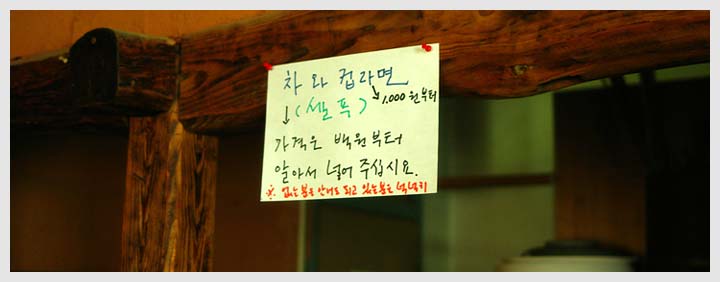 차 와 컵라면
↓(셀프) ↘1,000원부터
가격은 백원부터
알아서 넣어 주십시요.
※ 없는분은 안내도 되고 있는분은 넉넉히